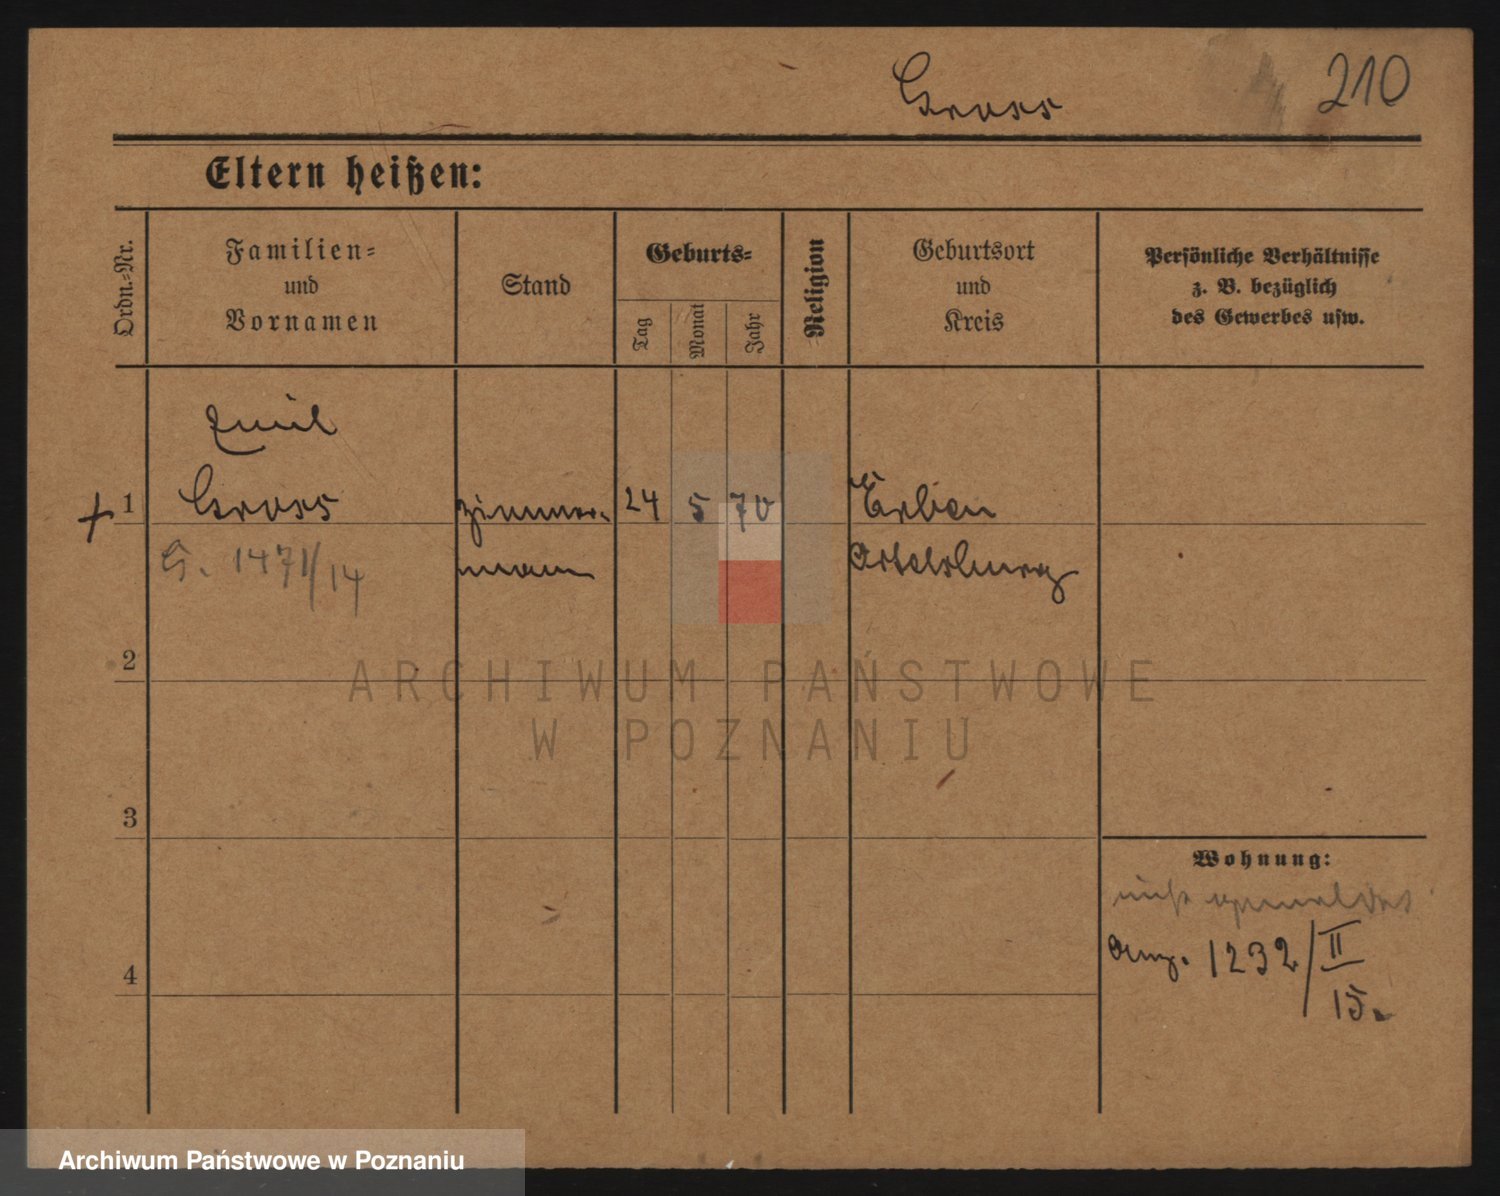 Gross
210
Eltern heißen:
Ordn.-Nr.
Familien-
und
Vornamen
Stand
Geburts-
Tag
Monat
Jahr
Religion
Geburtsort
und
Kreis
Persönliche Verhältnisse
z. B. bezüglich
des Gewerbes usw.
Emil
+ 1 Gross Zimmer- 24 5 70 Erben
G. 1471/14 mann Ortelsburg
2
ARCHIWUM PAŃSTWOWE
W POZNANIU
3
Wohnung:
nicht gemeldet
1232/II
4
15.
Archiwum Państwowe w Poznaniu